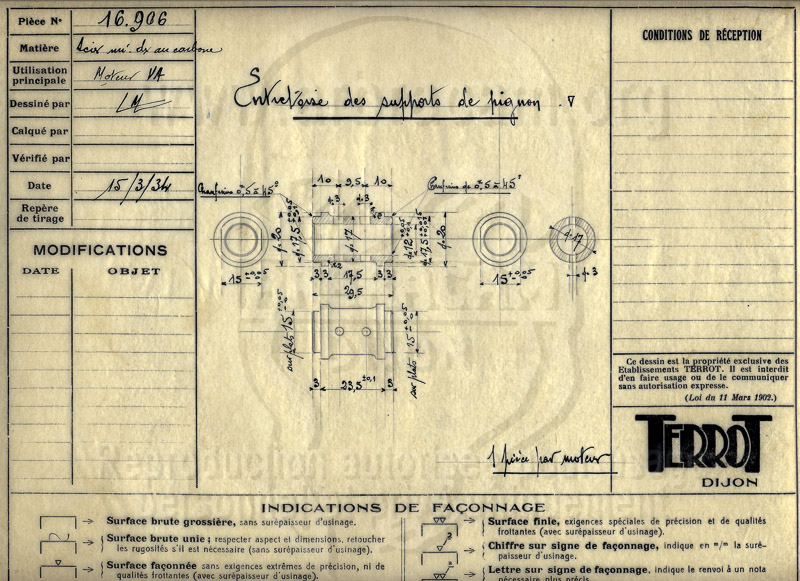 Pièce N° 16.906
Matière Acier au carbone
Utilisation
principale Moteur VA
Dessiné par LM
Calqué par
Vérifié par
Date 15/3/34
Repère
de tirage
MODIFICATIONS
DATE OBJET
CONDITIONS DE RÉCEPTION
Entretoise des supports de pignon. ▽
10 9,5 10
4.3 4.3
ϕ.20
ϕ.17
ϕ.20
ϕ.17
15
3 3 17,5 3 3
15
ϕ.3
29,5
sur plats 15
sur plats 15
3 23,5 ±0,1 3
1 pièce par moteur
Ce dessin est la propriété exclusive des
Etablissements TERROT. Il est interdit
d'en faire usage ou de le communiquer
sans autorisation expresse.
(Loi du 11 Mars 1902.)
TERROT
DIJON
INDICATIONS DE FAÇONNAGE
Surface brute grossière, sans surépaisseur d'usinage.
Surface brute unie; respecter aspect et dimensions, retoucher
les rugosités s'il est nécessaire (sans surépaisseur d'usinage).
Surface façonnée sans exigences extrêmes de précision, ni de
qualités frottantes (avec surépaisseur d'usinage).
Surface finie, exigences spéciales de précision et de qualités
frottantes (avec surépaisseur d'usinage).
Chiffre sur signe de façonnage, indique en m/m la suré-
paisseur d'usinage.
Lettre sur signe de façonnage, indique le renvoi à un nota
nécessaire plus précis.